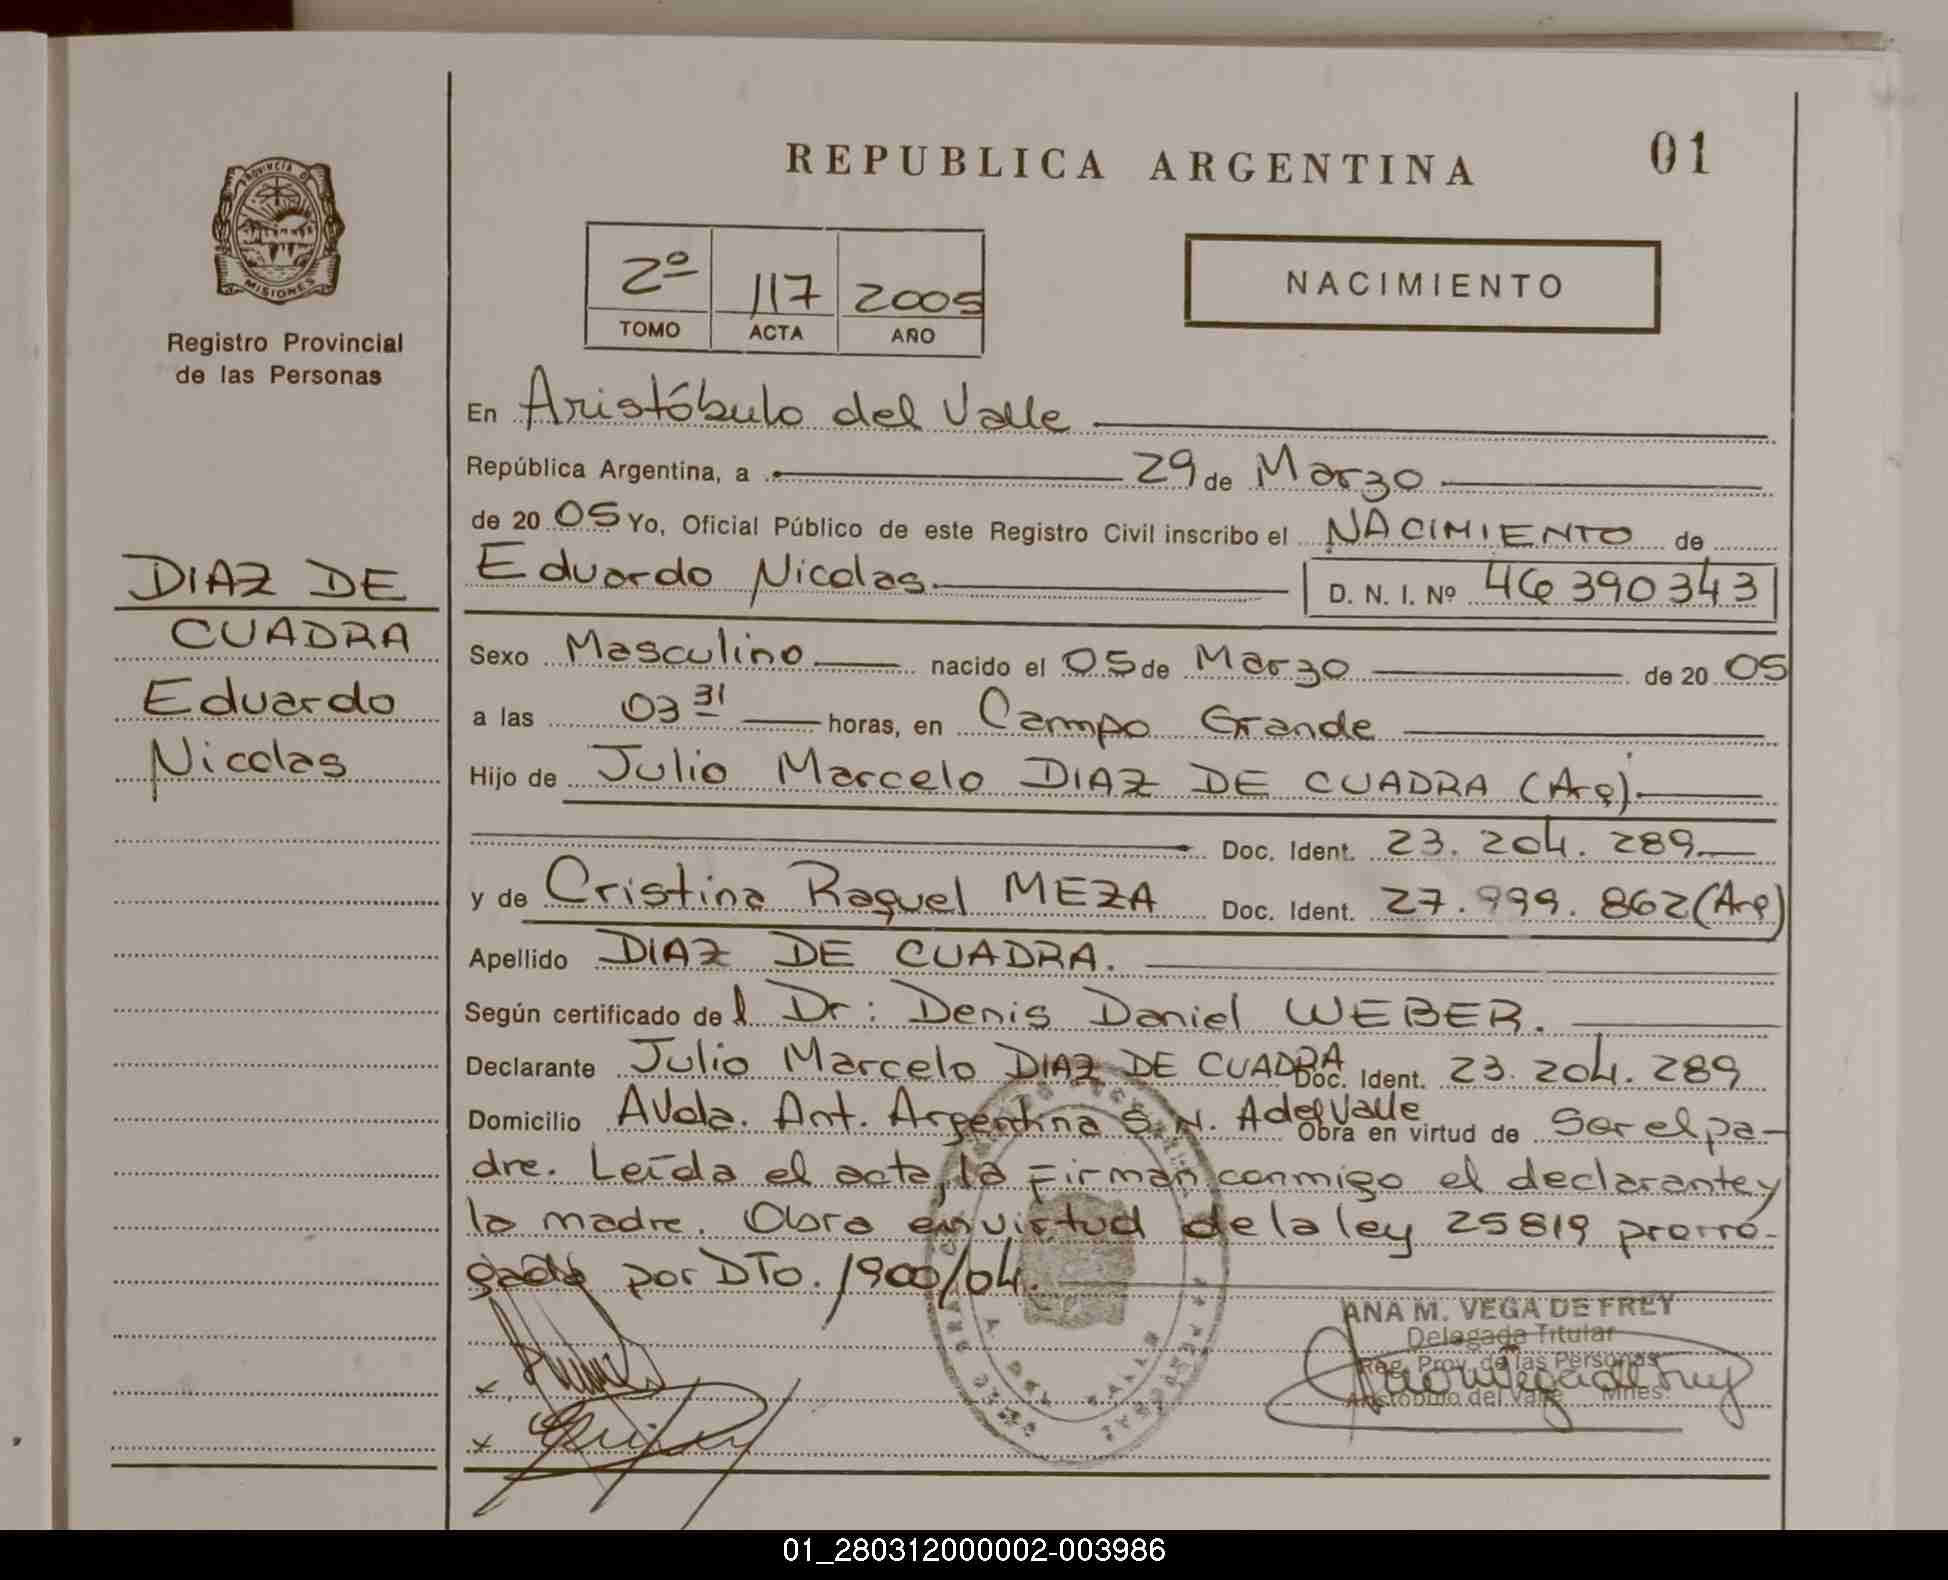 REPUBLICA ARGENTINA
01
PROVINCIA D
MISIONES
Registro Provincial
de las Personas
2º 117 2005
TOMO ACTA AÑO
NACIMIENTO
DIAZ DE
CUADRA
Eduardo
Nicolas
En Aristóbulo del Valle
República Argentina, a 29 de Marzo
de 20 05 Yo, Oficial Público de este Registro Civil inscribo el NACIMIENTO de
Eduardo Nicolas D. N. I. Nº 46 390 343
Sexo Masculino nacido el 05 de Marzo de 20 05
a las 03 31 horas, en Campo Grande
Hijo de Julio Marcelo DIAZ DE CUADRA (Arg)
Doc. Ident. 23.204.289
y de Cristina Raquel MEZA Doc. Ident. 27.999.862 (Arg)
Apellido DIAZ DE CUADRA.
Según certificado del Dr: Denis Daniel WEBER.
Declarante Julio Marcelo DIAZ DE CUADRA Doc. Ident. 23.204.289
Domicilio Avda. Ant. Argentina S. N. A del Valle Obra en virtud de Ser el pa-
dre. Leída el acta, la firman conmigo el declarante y
la madre. Obra en virtud de la ley 25819 prorro-
gada por DTO. 1900/04.
ANA M. VEGA DE FREY
Delegada Titular
Reg. Prov. de las Personas
Aristóbulo del Valle Mnes.
x
x
01_280312000002-003986